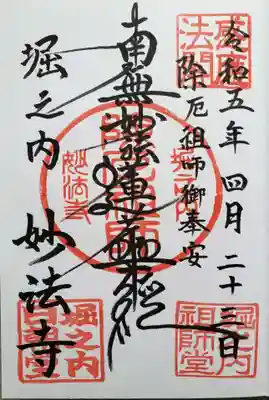 令和五年四月二十三日
除厄祖師御奉安
南無妙法蓮華経
堀之内 妙法寺
堀之内
妙法寺
堀之内
祖師堂
堀之内